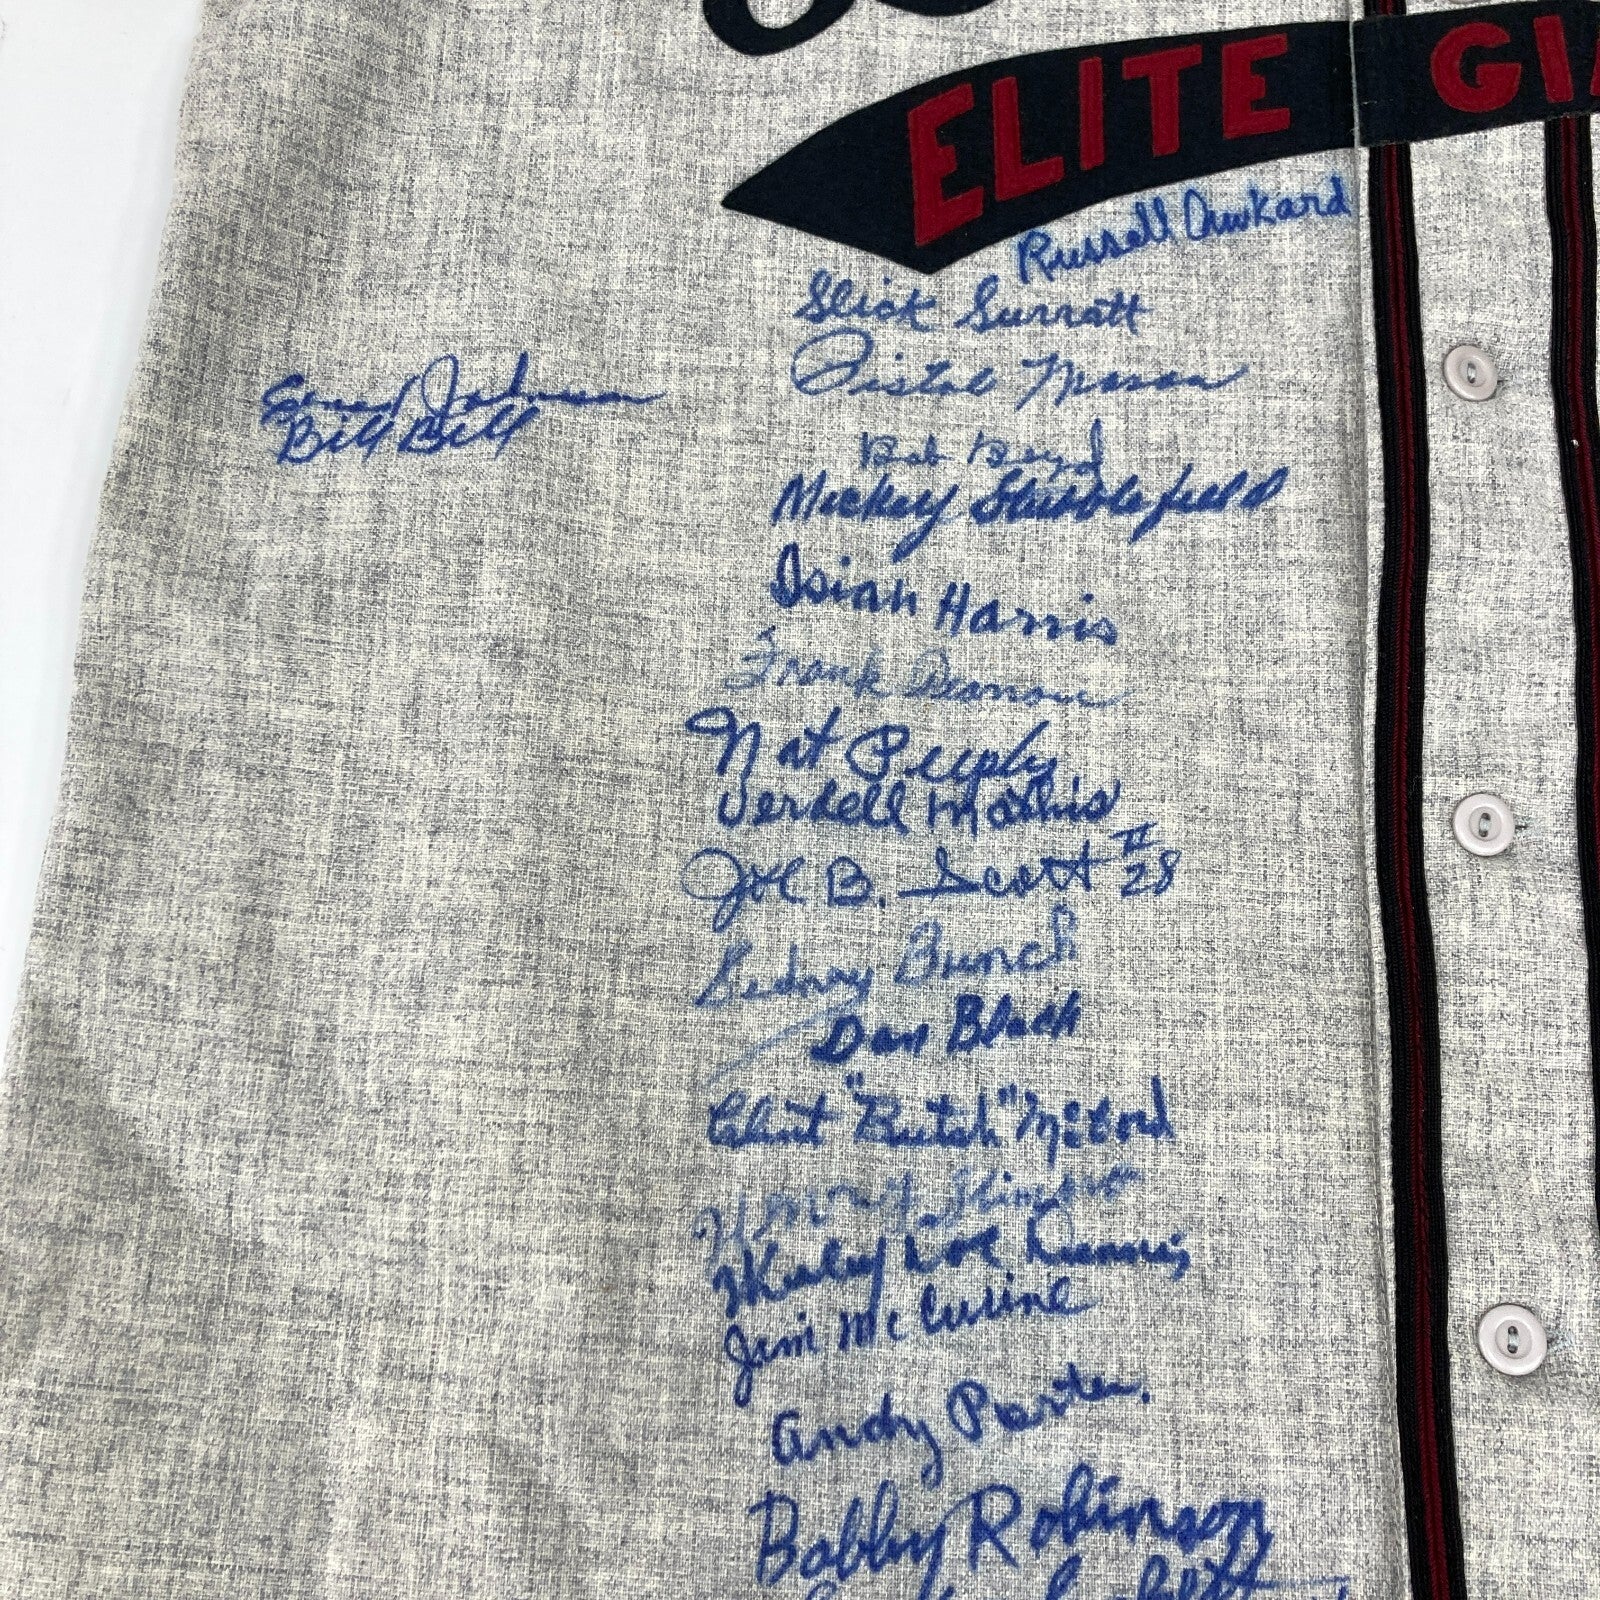 ELITE GIA
Russell Awkard
Slick Surratt
Pistol Mason
Johnson
Bill Bell
Bob Boyd
Mickey Stubblefield
Isiah Harris
Frank
Nat Peeples
Verdell Mathis
Joe B. Scott II
28
Sidney Bunch
Dan Black
Clint "Butch" McCord
Jim McCurine
Andy Porter.
Bobby Robinson